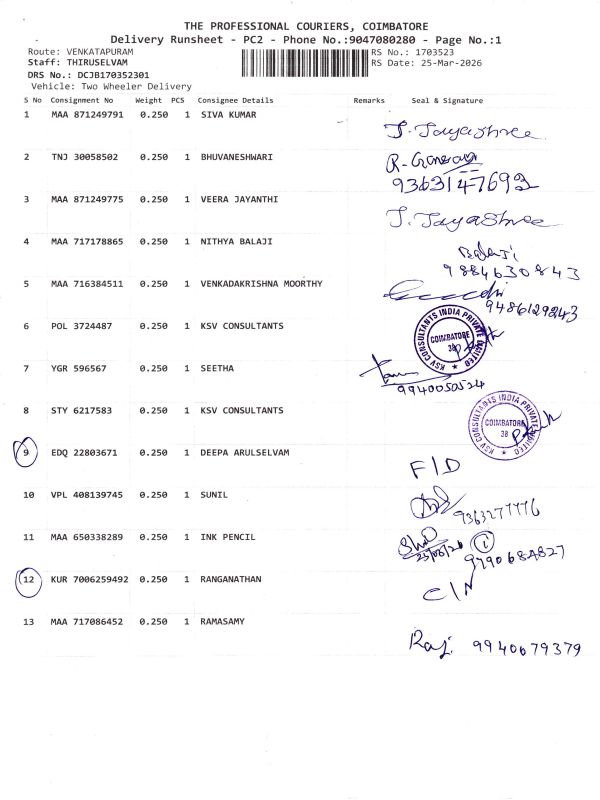 THE PROFESSIONAL COURIERS, COIMBATORE
Delivery Runsheet - PC2 - Phone No.:9047080280 - Page No.:1
Route: VENKATAPURAM RS No.: 1703523
Staff: THIRUSELVAM RS Date: 25-Mar-2026
DRS No.: DCJB170352301
Vehicle: Two Wheeler Delivery
S No Consignment No Weight PCS Consignee Details Remarks Seal & Signature
1 MAA 871249791 0.250 1 SIVA KUMAR J. Jayashree
2 TNJ 30058502 0.250 1 BHUVANESHWARI
9363147692
3 MAA 871249775 0.250 1 VEERA JAYANTHI J. Jayashree
4 MAA 717178865 0.250 1 NITHYA BALAJI Balaji
9884630843
5 MAA 716384511 0.250 1 VENKADAKRISHNA MOORTHY
9486129243
6 POL 3724487 0.250 1 KSV CONSULTANTS KSV CONSULTANTS INDIA PRIVATE LIMITED COIMBATORE 38
7 YGR 596567 0.250 1 SEETHA
9940050524
8 STY 6217583 0.250 1 KSV CONSULTANTS KSV CONSULTANTS INDIA PRIVATE LIMITED COIMBATORE 38
9 EDQ 22803671 0.250 1 DEEPA ARULSELVAM F/D
10 VPL 408139745 0.250 1 SUNIL
9363277776
11 MAA 650338289 0.250 1 INK PENCIL
9790684827
12 KUR 7006259492 0.250 1 RANGANATHAN C/N
13 MAA 717086452 0.250 1 RAMASAMY
Raj. 9940679379